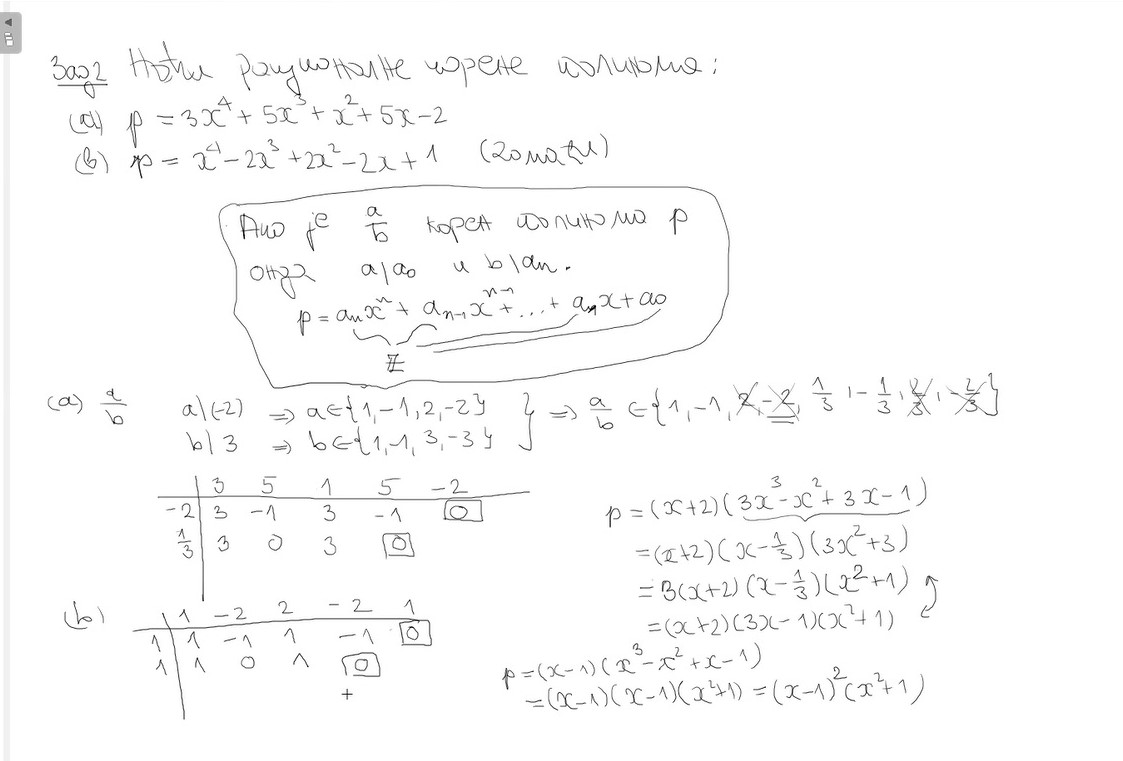 Зад 2 Наћи рационалне корене полинома:
(a) p = 3x⁴ + 5x³ + x² + 5x - 2
(b) p = x⁴ - 2x³ + 2x² - 2x + 1 (домаћи)
Ако је a/b корен полинома p
онда a|a₀ и b|aₙ.
p = aₙxⁿ + aₙ₋₁xⁿ⁻¹ + ... + a₁x + a₀
ℤ
(a) a/b a|(-2) => a∈{1,-1,2,-2} } => a/b ∈ {1,-1,2,-2, 1/3, -1/3, 2/3, -2/3}
b|3 => b∈{1,-1,3,-3}
3 5 1 5 -2
-2 3 -1 3 -1 0
1/3 3 0 3 0
p = (x+2)(3x³ - x² + 3x - 1)
= (x+2)(x - 1/3)(3x² + 3)
= 3(x+2)(x - 1/3)(x² + 1)
= (x+2)(3x - 1)(x² + 1)
(b) 1 -2 2 -2 1
1 1 -1 1 -1 0
1 1 0 1 0
+
p = (x-1)(x³ - x² + x - 1)
= (x-1)(x-1)(x²+1) = (x-1)²(x²+1)